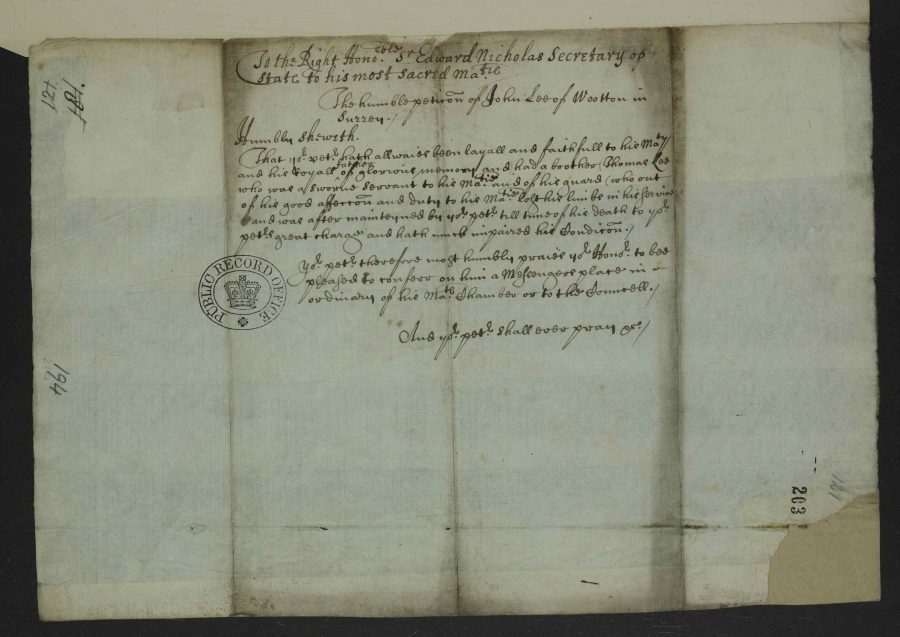 To the Right Hono:ble Sr Edward Nicholas Secretary of
State to his most sacred Ma:tie
The humble peticon of John Lee of Wootton in
Surrey./
Humbly sheweth.
That yor: petr: hath allwaies been layall and faithfull to his Maty
and his Royall father of glorious memory and had a brother (Thomas Lee
who was a sworne servant to his Ma:tie and of his guard (who out
of his good affeccon and duty to his Ma:tie lost his limbs in his service
and was after mainteyned by yor: petr: till time of his death to yor:
petrs great charge and hath much impaired his Condicon./
Yor: petr: therefore most humbly praies yor: Honor: to bee
pleased to conferr on him a Messengers place in
ordinary of his Mats Chamber or to the Councell./
And yor: petr: shall ever pray &c:/
PUBLIC RECORD OFFICE
194
203
121